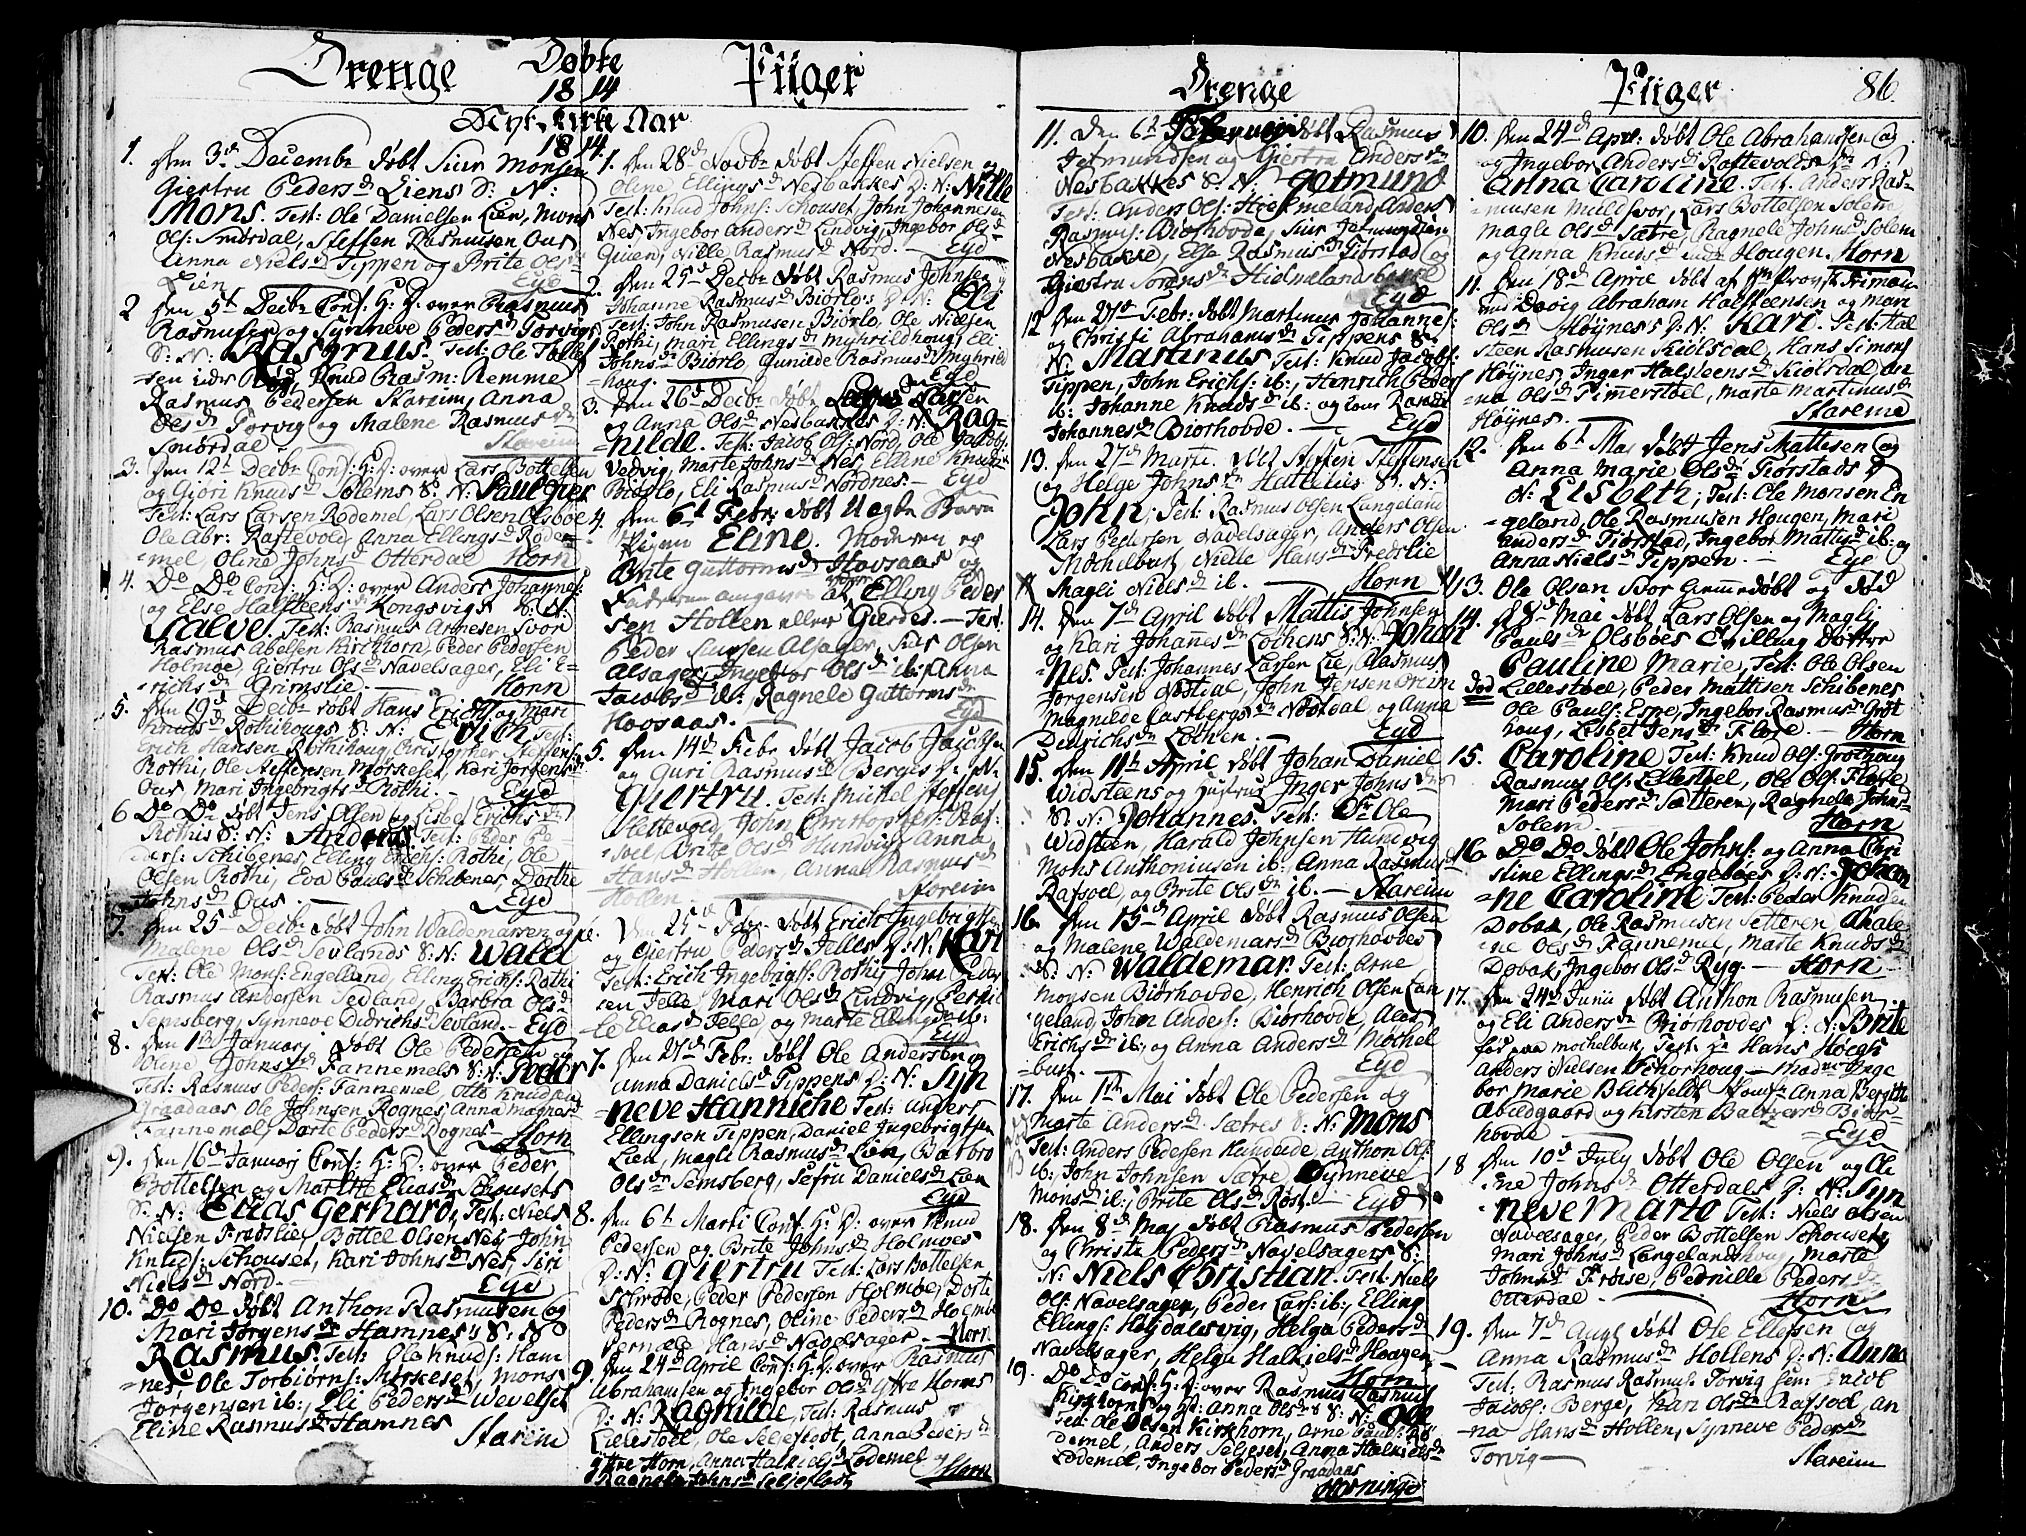 Drenge Døbte Piiger
18 14
Nyt Kirke Aar
1814.
1. Den 3d Decembr døbt Siur Monsen
Giertru Peders d Liens S: N:
Mons. Test: Ole Danielsen Lien, Mons
Ols: Smørdal, Steffen Rasmusen Ous
Anna Niels d Tippen og Brite Ols d
Lien Eyd
2 Den 5t Decbr Conf: H: D: over Rasmus
Rasmusen og Synneve Peders d Torvigs
S: N: Rasmus. Test: Ole Tolles
sen Røg, Knud Rasm: Remme
Rasmus Pedersen Stareim, Anna
Ols d Torvig og Malene Rasmus d
Smørdal Stareim
3. Den 12t Decbr Conf: H: D: over Lars Bottelsen
og Giøri Knuds d Solems S: N: Paul
Test: Lars Larsen Rødemel, Lars Olsen Olsbøe
Ole Abr: Raftevold, Anna Ellings d Røde
mel, Oline Johns d Otterdal Horn
4. Do Do Conf: H: D: over Anders Johannes:
og Else Halsteens d Kongsvigs S: N:
Salve. Test: Rasmus Arnesen Svori
Rasmus Abelsen Kirkhorn, Peder Pedersen
Holmøe, Giertru Ols d Navelsager, Eli E
richs d Grimslie. Horn
5. Den 19d Decbr døbt Hans Erichs: og Mari
Knuds d Rothihougs S: N: Erich Test:
Erich Hansen Rothihoug, Christopher Steffens:
Rothi, Ole Steffensen Morkeset, Kari Jørgens d
Ous Mari Ingebrigts d Rothi. Eyd
6 Do Do døbt Jens Olsen og Lisbet Erichs d
Rothis S: N: Anders Test: Peder Pe
ders: Schibenes, Elling Erichs: Rothi, Ole
Olsen Rothi, Eva Pauls d Schibenes, Dorthe
Johns d Ous. Eyd
7. Den 25d Decbr døbt John Waldemarsen og
Malene Ols d Sevlands S: N: Wald
Test: Ole Mons: Engelland, Elling Erichs: Rothi
Rasmus Andersen Sevland, Barbra Ols d
Semsberg, Synneve Didrichs d Sevland. Eyd
8. Den 1th Januarj døbt Ole Pedersen og
Oline Johns d Fannemels S: N: Peder
Test: Rasmus Peders: Fannemel, Otto Knudsen
Graadaas, Ole Johnsen Rognes, Anna Magnes d
Fannemel, Dorte Peders d Rognes Horn
9. Den 16d Januarj Conf: H: D: over Peder
Bottelsen og Marthe Elias d Schousets
S: N: Elias Gerhard, Test: Niels
Nielsen Frøslie, Bottel Olsen Nes, John
Knuds: Schouset, Kari Johns d Nes, Siri
Niels d Nord. Eyd
10. Do Do døbt Anthon Rasmusen og
Mari Jørgens d Hamnes's S: N:
Rasmus. Test: Ole Knuds: Ham
nes, Ole Torbiørns: Morkeset, Mons
Jørgensen ib:, Eli Peders d Wevelset
Eline Rasmus d Hamnes
Stareim
1. Den 28d Novbr døbt Steffen Nielsen og
Oline Ellings d Nesbakkes D: N: Nille
Test: Knud Johns: Schouset, John Johannesen
Nes, Ingebor Anders d Lindvig, Ingebor Ols d
Giuen, Nille Rasmus d Nord. Eyd
2. Den 25d Decbr døbt Rasmus Johnsen
Johanne Rasmus d Biørlo's D: N: Eli
Test: John Rasmusen Biørlo, Ole Nielsen
Rothi, Mari Ellings d Myhrildhoug, Eli
Johns d Biørlo, Gunilde Rasmus d Myhrild
houg. Eyd
3. Den 26d Decbr døbt Larsen
og Anna Ols d Nesbakkes D: N: Rag
nilde. Test: Jacob Ols: Nord, Ole Jacobs:
Vedvig, Marte Johns d Nes, Elline Knuds d
Biørlo, Eli Rasmus d Nordnes. Eyd
4. Den 6t Febr: døbt Uægte Barn
Pigen Eline. Moderen er
Brite Guttorms d Hovsaas og
Faderen angaves at være Elling Peder
sen Hollen eller Gierdes. Test:
Peder Larsen Alsager, Lars Olsen
Alsager, Ingebor Ols d ib: Anna
Jacobs d ib: Ragnele Guttorms d
Hovsaas. Eyd
5. Den 14d Febr døbt Jacob Jacobsen
og Guri Rasmus d Berges D: N:
Giertru. Test: Michel Steffens:
Slettevold, John Christophers: Raf
svel, Brite Ols d Hundvig, Anna
Hans d Hollen, Anna Rasmus d
Hollen. Stareim
6. Den 25d Febr døbt Erich Ingebrigtsen
og Giertru Peders d Telles D: N: Kari
Test: Erich Ingebrigts: Rothi, John Peder
sen Telle, Mari Ols d Lindvig, Pernil
le Elias d Telle, og Marte Ellings d ib:
Eyd
7. Den 27d Febr: døbt Ole Andersen og
Anna Daniels d Tippens D: N: Syn
neve Hanniche Test: Anders
Ellingsen Tippen, Daniel Ingebrigtsen
Lien, Magli Rasmus d Lien, Barbro
Ols d Semsberg, Sefru Daniels d Lien
Eyd
8. Den 6t Marti Conf: H: D: over Knud
Pedersen og Brite Johns d Holmøes
D: N: Giertru Test: Lars Bottelsen
Schrøde, Peder Pedersen Holmøe, Dorte
Peders d Rognes, Oline Peders d Holmøe
Pernele Hans d Navelsager. Horn
9. Den 24d April Conf: H: D: over Rasmus
Abrahamsen og Ingebor Ols d Yttre Horns
D: N: Ragnilde, Test: Rasmus
Lillestøel, Ole Seljeflodt, Anna Peders d
Yttre Horn, Anna Halkiels d Lødemel og
Ragnele Johns d Seljeflodt Horn
Drenge Piiger 86.
11. Den 6t Februarj døbt Rasmus
Jetmundsen og Giertru Anders d
Nesbakkes S: N: Jetmund
Test: Anders Ols: Hielmeland, Anders
Rasmus: Biørhovde, Siur Jetmundsen
Nesbakke, Else Rasmus d Tiørstad og
Giertru Sørens d Hielmeland
Eyd
12 Den 27de Febr: døbt Martinus Johannes:
og Christi Abrahams d Tippens S:
N: Martinus Test: Knud Jacobs:
Tippen, John Erichs: ib:, Henrich Peders
ib: Johanne Knuds d ib: og Randi
Johannes d Biørhovde. Eyd
13. Den 27d Marti. døbt Steffen Steffensen
og Helge Johns d S: N:
John, Test: Rasmus Olsen Langeland
Lars Pedersen Navelsager, Anders Olsen
Møchelbust, Nille Hans d Frøslie
Magli Niels d ib. Horn
14. Den 7d April døbt Mattis Johnsen
og Kari Johannes d Lothens S: N: Johan
nes. Test: Johannes Larsen Lie, Rasmus
Jørgensen Nøstdal, John Jensen Dreim
Magnilde Castbergs d Nøstdal og Anna
Didrichs d Lothen. Eyd
15. Den 11th April døbt Johan Daniel
Widsteens og Hustrue Inger Johns d
S: N: Johannes. Test: Hr Ole
Widsteen, Harald Johnsen Hundvig
Mons Anthoniusen ib: Anna Rasmus d
Rafsvel, og Brite Ols d ib. Stareim
16. Den 15d April døbt Rasmus Olsen
og Malene Waldemars d Biørhovdes
S: N: Waldemar. Test: Arne
Monsen Biørhovde, Henrich Olsen Lan
geland, John Anders: Biørhovde, Ales
Erichs d ib: og Anna Anders d Møchel
bust. Eyd
17. Den 1th Mai døbt Ole Pedersen og
Marte Anders d Sætres S: N: Mons
Test: Anders Pedersen Kundeide, Anthon Ols:
ib: John Johnsen Sætre, Synneve
Mons d ib:, Brite Ols d Røst. Eyd
18. Den 8d Maj døbt Rasmus Pedersen
og Christi Peders d Navelsagers S:
N: Niels Christian. Test: Niels
Ols: Navelsager, Peder Lars: ib:, Elling
Ellings: Heldalsvig, Helga Peders d
Navelsager, Helga Halkiels d Hougen
Horn
19. Do Do Conf: H: D: over Rasmus Rasmus
Kirkhorns og H: Anna Ols d s S: N: Ole
Test: Ole Olsen Kirkhorn, Arne Lø
demel, Anders Seljeset, Anna Halkiels d
Lødemel, Ingebor Peders d Graadaas
Horningd
10. Den 24d April: døbt Ole Abrahamsen og
Ingebor Anders d Raftevolds D: N:
Anna Caroline. Test: Anders Ras
musen Muldsvor, Lars Bottelsen Solem
Magli Ols d Sætre, Ragnele Johns d Solem
og Anna Knuds d Hougen. Horn
11. Den 18d April døbt af Hr Provst Friman
Abraham Halsteensen og Mari
Ols d Høynes's D: N: Kari. Test: Hal
steen Rasmusen Kiølsdal, Hans Simons
Høynes, Inger Halsteens d Kiølsdal An
na Ols d Timerstøl, Marte Martinus d
Høynes. Stareim
12. Den 6t Maj døbt Jens Mattisen og
Anna Marie Ols d Tiørstads D
N: Lisbeth; Test: Ole Monsen En
geland, Ole Rasmusen Hougen, Mari
Anders d Tiørstad, Ingebor Mattis d ib: og
Anna Niels d Tippen. Eyd
13. Ole Olsen Svor hiemmedøbt og død
14. D 8d Mai døbt Lars Olsen og Magli
Pauls d Olsbøes Tvilling Døttre
Pauline Marie, Test: Ole Olsen
død Lillestøel, Peder Mattisen Schibenes
Ole Pauls: Espe, Ingebor Rasmus d Grot
houg, Lisbet Jens d Fløde. Horn
15. Caroline Test: Knud Ols: Grothoug
Rasmus Ols: Lillestøel, Ole Ols: Fløde
Mari Peders d Sætteren, Ragnele Johns d
Solem. Horn
16. Do Do døbt Ole Johns: og Anna Chri
stine Ellings d Engebøes D: N: Johan
ne Caroline Test: Peder Knudsen
Dobak, Ole Rasmusen Setteren, Male
ne Ols d Fannemel, Marte Knuds d
Dobak, Ingebor Ols d Ryg. Horn
17. Den 24d Junii døbt Anthon Rasmusen
og Eli Anders d Biørhovdes D: N: Brite
før paa Møchelbust, Test: Hr Hans Høegh
Anders Nielsen Schorhoug, Madme Inge
bor Marie Blichfeldt Jomfr Anna Bergitte
Abildgaard og Kirsten Baltzers d Biør
hovde Eyd
18 Den 10d July døbt Ole Olsen og Oli
ne Johns d Otterdals D: N: Syn
neve Marta Test: Niels Olsen
Navelsager, Peder Bottelsen Schouset
Mari Johns d Langelandshoug, Marte
Johns d Frøise, Pednille Peders d
Otterdal. Horn
19. Den 7d Augt døbt Ole Ellefsen og
Anna Rasmus d Hollens D: N: Anna
Test: Rasmus Rasmus: Torvig sen: Jacob
Jacobs: Berge, Kari Ols d Rafsdal, An
na Hans d Hollen, Synneve Peders d
Torvig Stareim